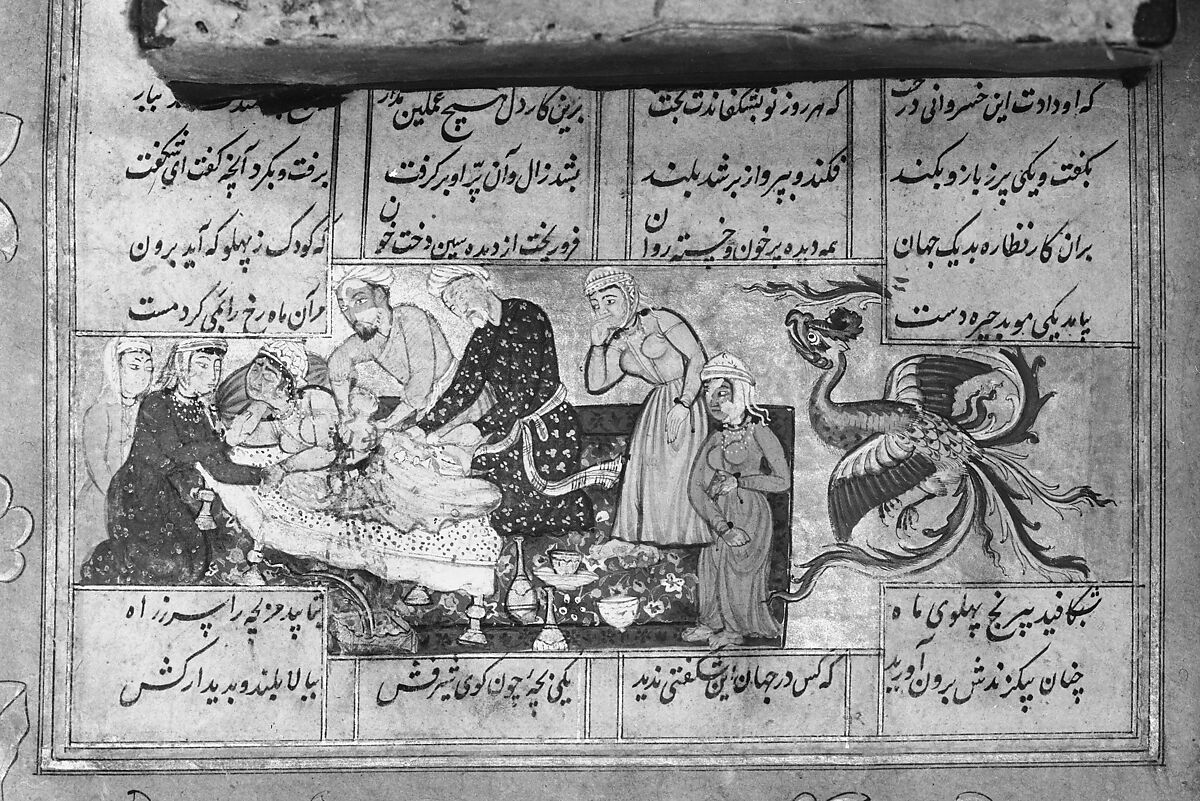 که او دادت این خسروانی درخت که هر روز نو بشکفاندت بخت برین کار دل هیچ غمگین مدار ببار
بگفت و یکی پر ز بازو بکند فکند و بپرواز بر شد بلند بشد زال و آن پرّ او برگرفت برفت و بکرد آنچه گفت ای شگفت
بران کار نظاره بد یک جهان همه دیده پر خون و خسته روان فرو ریخت از دیده سیندخت خون که کودک ز پهلو که آید برون
بیامد یکی موبد چیره دست مران ماه رخ را بمی کرد مست
شکافید بیرنج پهلوی ماه بتابید مر بچه را سر ز راه
چنان بیگزندش برون آورید که کس در جهان این شگفتی ندید یکی بچهٔ چون گوی شیرفش ببالا بلند و بدیدار کش